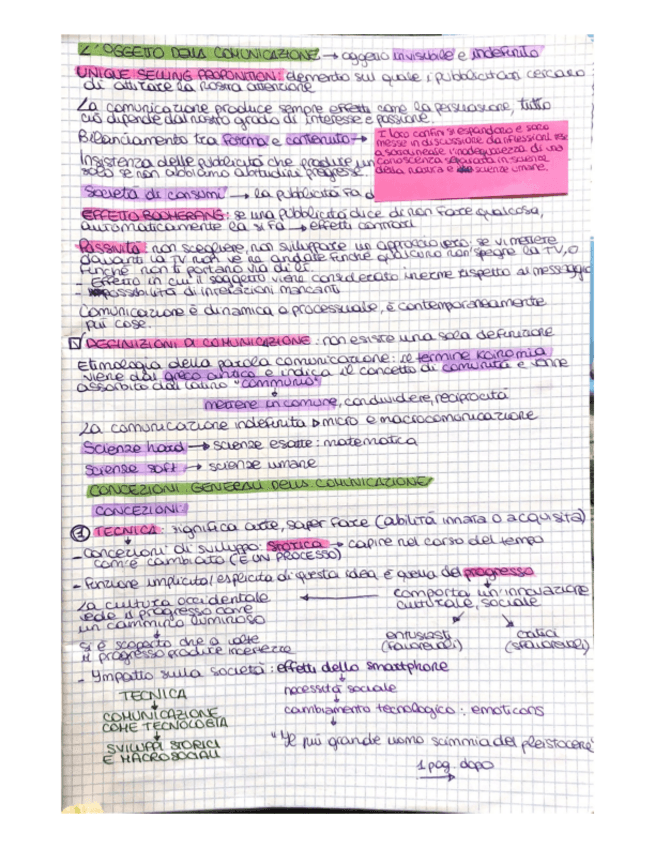 L'OGGETTO DELLA COMUNICAZIONE → oggetto invisibile e indefinito
UNIQUE SELLING PROPOSITION: elemento sul quale i pubblicitari cercano
di attirare la nostra attenzione
La comunicazione produce sempre effetti come la persuasione, tutto
ciò dipende dal nostro grado di interesse e passione.
Bilanciamento tra forma e contenuto →
I loro confini si espandono e sono
messe in discussione da riflessioni
a sottolineare l'inadeguatezza di una
conoscenza separata in scienze
della natura e scienze umane.
Insistenza delle pubblicità che produce un
solo se non abbiamo abitudini pregresse
Società di consumi → la pubblicità fa d
EFFETTO BOOMERANG: se una pubblicità dice di non fare qualcosa,
automaticamente la si fa → effetti contrari
Passività: non scegliere, non sviluppare un approccio vero; se vi mettere
davanti la TV non ve ne andate finché qualcuno non spegne la TV, o
finché non ti portano via di lì
- Effetto in cui il soggetto viene considerato inerme rispetto al messaggio
- impossibilità di interazioni mancanti
Comunicazione è dinamica o processuale, è contemporaneamente
più cose.
DEFINIZIONI DI COMUNICAZIONE: non esiste una sola definizione
Etimologia della parola comunicazione: il termine koinomia
viene dal greco antico e indica il concetto di comunità e venne
assorbito dal latino "communio"
mettere in comune, condividere, reciprocità
La comunicazione indefinita → micro e macrocomunicazione
Scienze hard → scienze esatte: matematica
Scienze soft → scienze umane
CONCEZIONI GENERALI DELLA COMUNICAZIONE
CONCEZIONI
① TECNICA: significa arte, saper fare (abilità innata o acquisita)
- Concezioni di sviluppo: STORICA → capire nel corso del tempo
com'è cambiato (È UN PROCESSO)
- Funzione implicita/esplicita di questa idea è quella del progresso
comporta un'innovazione
culturale, sociale
La cultura occidentale
vede il progresso come
un cammino luminoso
entusiasti
(favorevoli)
critici
(sfavorevoli)
si è scoperto che a volte
il progresso produce incertezze
- Impatto sulla società: effetti dello smartphone
necessità sociale
cambiamento tecnologico: emoticons
"Il più grande uomo scimmia del pleistocene"
TECNICA
COMUNICAZIONE
COME TECNOLOGIA
SVILUPPI STORICI
E MACROSOCIALI
1 pag. dopo